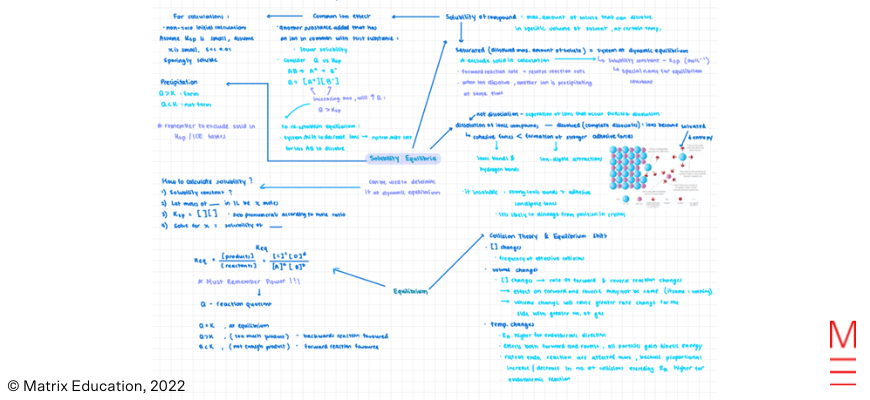 For calculations :
· non-zero initial calculation
Assume Ksp is small, assume
x is small,
Sparingly soluble
Precipitation
Q > K : form
Q < K : not form
* remember to exclude solid in
Ksp / ICE tables
Common ion effect
· another substance added that has
an ion in common with first substance :
· lower solubility
· consider Q vs Ksp
AB ⇌ A⁺ + B⁻
Q = [A⁺][B⁻]
increasing one, will ↑ Q :
Q > Ksp
to re-establish equilibrium :
· system shift to decrease ions → system shift left
for less AB to dissolve
Solubility of compound : max. amount of solute that can dissolve
in specific volume of solvent, at certain temp.
Saturated (dissolved max. amount of solute) = system at dynamic equilibrium
* exclude solid in calculation
↳ solubility constant - Ksp (molL⁻¹)
· forward reaction rate = reverse reaction rate
↳ special name for equilibrium
constant
· when ion dissolves, another ion is precipitating
at same time
Solubility Equilibria
not dissociation - separation of ions that occur
dissolution of ionic compounds — dissolved (complete dissolution) : ions become solvated
↳ cohesive forces < formation of stronger adhesive forces
↑ entropy
Ionic bonds &
hydrogen bonds
ion-dipole attractions
· If insoluble : strong ionic bonds > adhesive
ion-dipole forces
· less likely to dislodge from position in crystal
How to calculate solubility ?
1) Solubility constant ?
2) Let moles of __ in 1L be x moles
3) Ksp = [ ][ ] · Add pronumerals according to mole ratio
4) Solve for x = solubility of __
can be used to determine
if at dynamic equilibrium
Keq
Keq = [products] / [reactants] = [C]ᶜ [D]ᵈ / [A]ᵃ [B]ᵇ
* Must Remember Power !!!
Q - reaction quotient
Q = K , at equilibrium
Q > K , (too much product) - backwards reaction favoured
Q < K , (not enough product) - forward reaction favoured
Equilibrium
Collision Theory & Equilibrium Shift
· [ ] changes
· frequency of effective collisions
· Volume changes
· [ ] changes → rate of forward & reverse reaction changes
→ effect on forward and reverse may not be same
→ volume change will cause greater rate change for the
side with greater no. of gas
· Temp. changes
· Ea higher for endothermic direction
· effects both forward and reverse, all particle gain kinetic energy
increase / decrease in no. of collisions exceeding Ea higher for
endothermic reaction
© Matrix Education, 2022
M